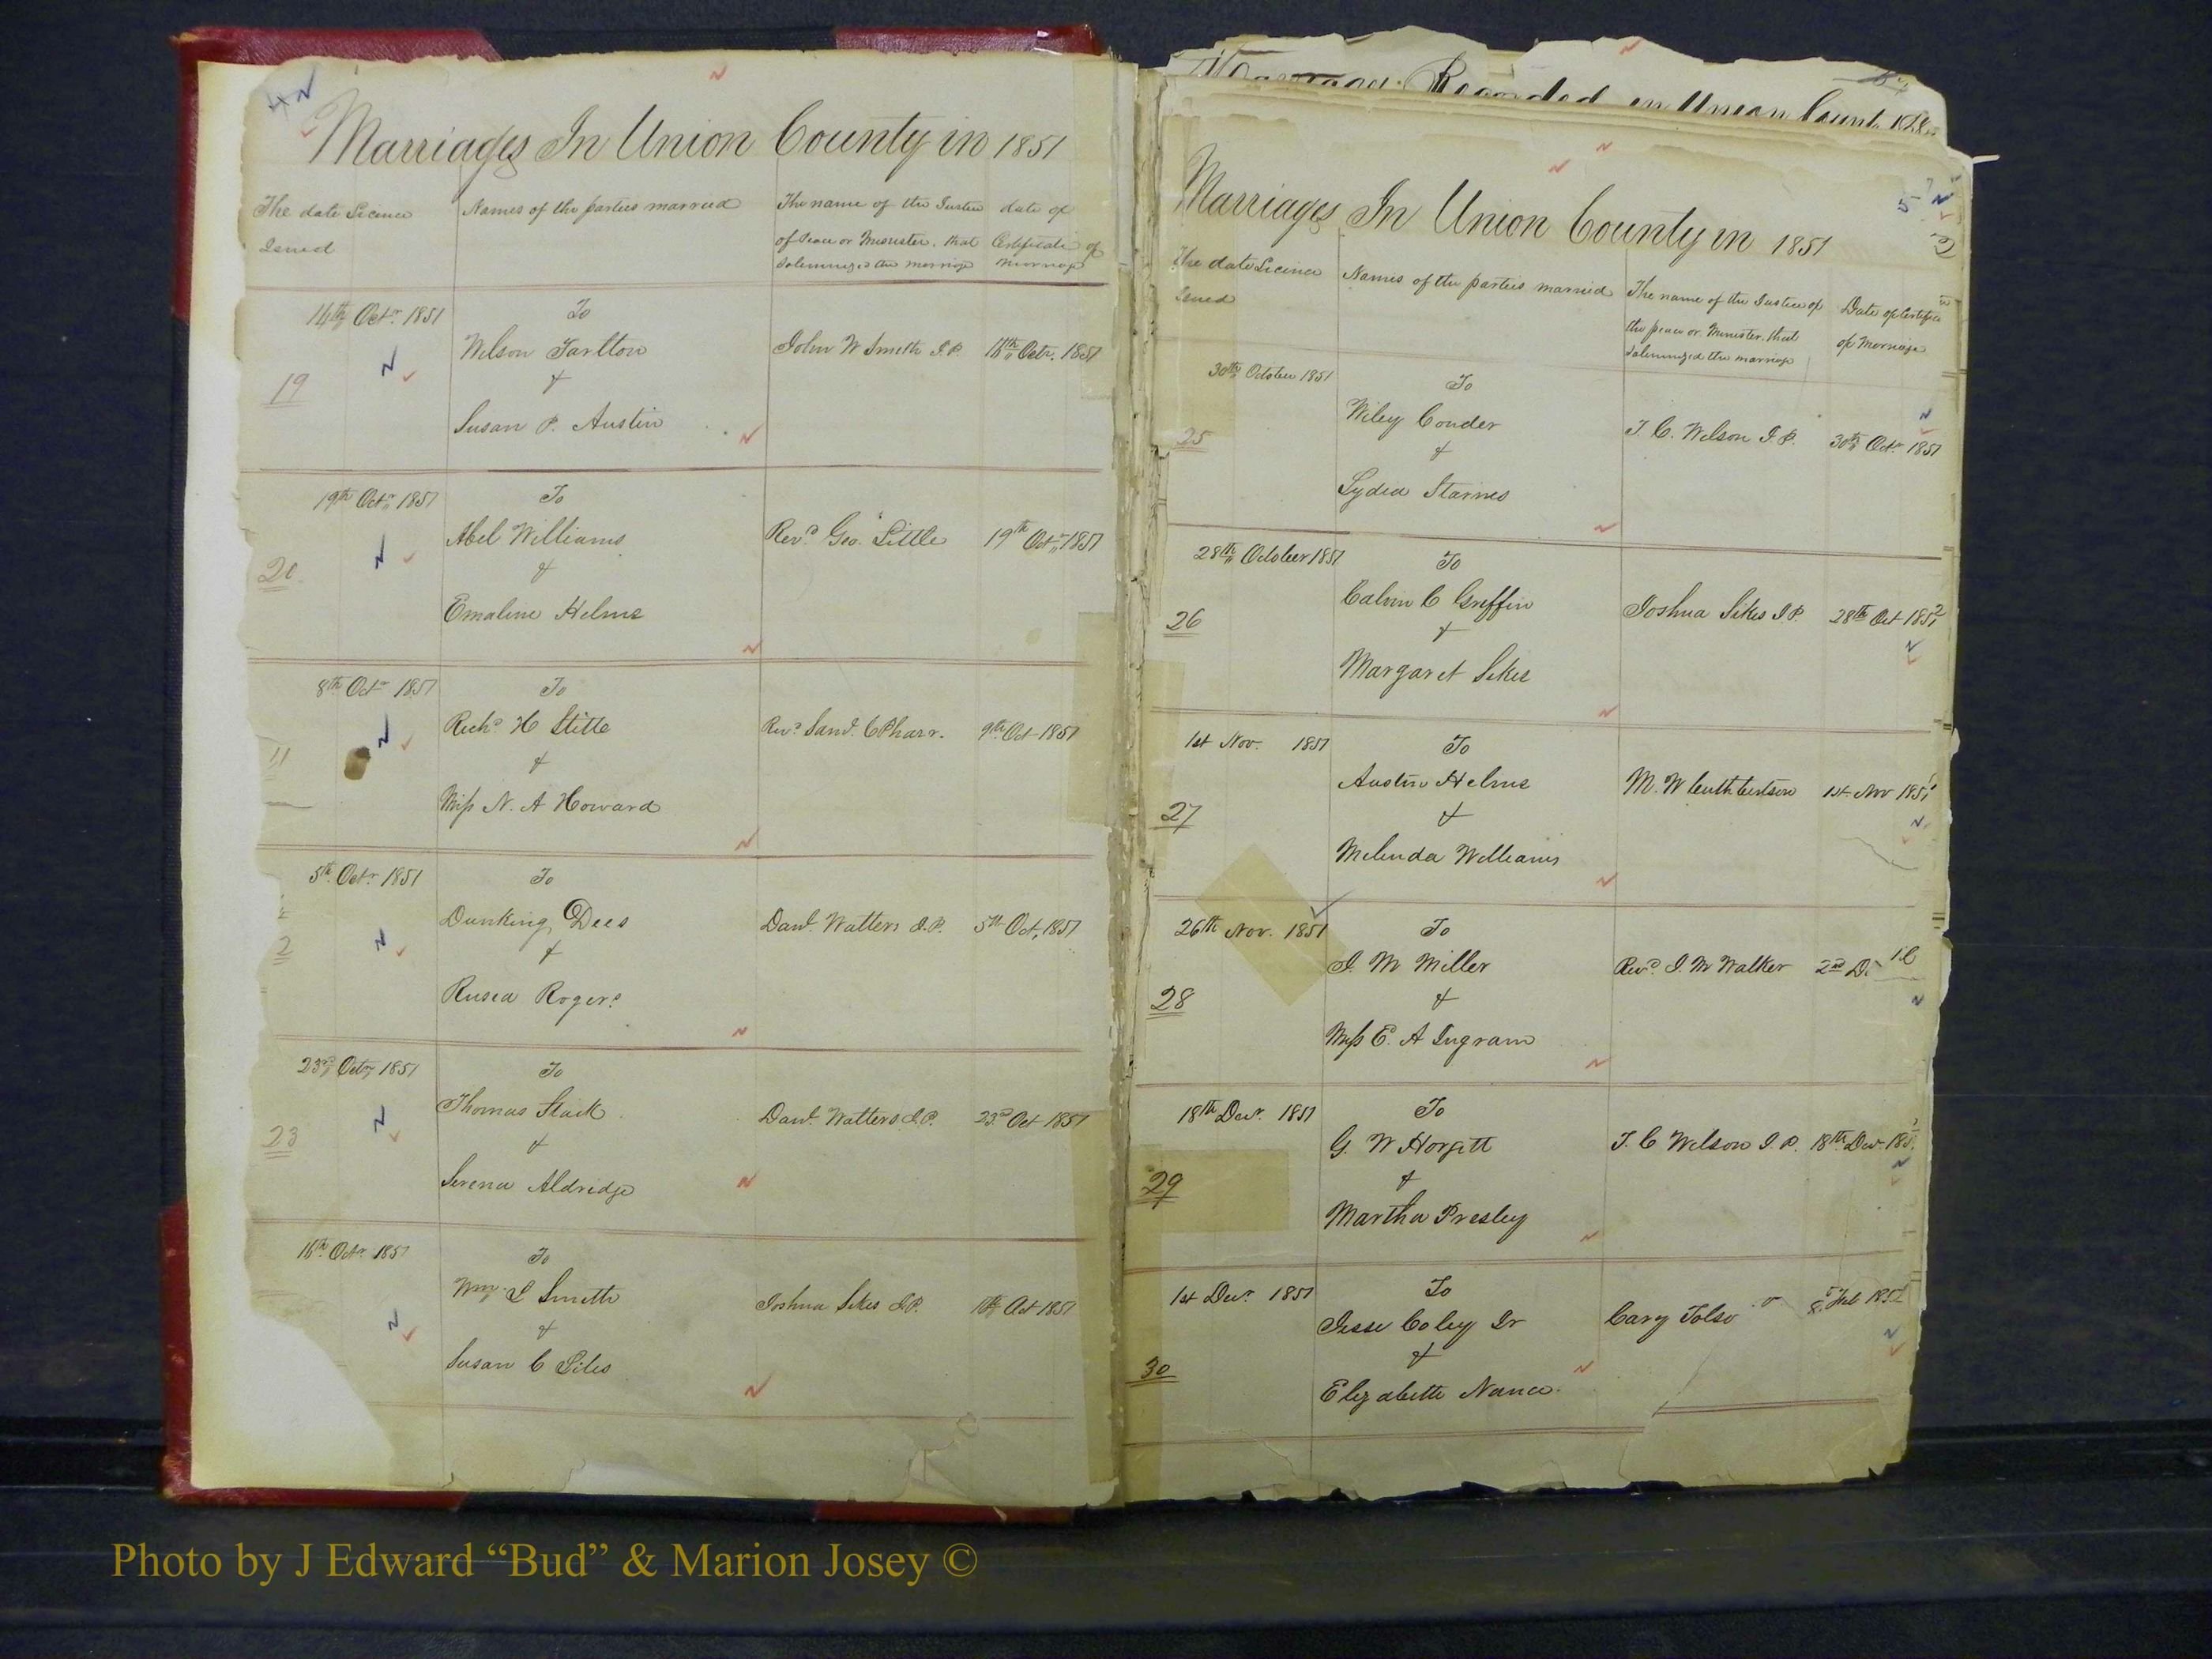 4
Marriages In Union County in 1851
The date Licence
Issued
Names of the parties married
The name of the Justice
of Peace or Minister, that
Solemnized the marriage
date of
Certificate of
Marriage
14th Octr. 1851
To
19
Wilson Tarlton
John W Smith J.P.
Octr. 1851
&
Susan P. Austin
19th Octr 1851
To
20
Abel Williams
Revd. Geo. Little
19th Octr 1851
&
Emaline Helms
8th Octr 1851
To
Richd H Stitte
Revd Saml. C Pharr.
9th Oct 1851
&
Miss N. A Howard
5th. Octr. 1851
To
2
Dunking Dees
Danl. Watters J.P.
5th Oct, 1851
&
Rusea Rogers
23rd Octr 1851
To
23
Thomas Stack
Danl Watters J.P.
23rd Oct 1851
&
Serena Aldridge
16th Octr 1851
To
Wm. L Smith
Joshua Sikes J.P.
Oct 1851
&
Susan C Liles
Marriages Recorded in Union Count
Marriages In Union County in 1851
5
The date Licence
Issued
Names of the parties married
The name of the Justice of
the peace or Minister, that
Solemnized the marriage
Date of Certifica
of Marriage
30th October 1851
To
25
Wiley Conder
T. C. Wilson J.P.
30th Octr 1851
&
Lydia Starnes
28th October 1851
To
26
Calvin C Griffin
Joshua Sikes J.P.
28th Oct 185
&
Margaret Sikes
1st Nov. 1851
To
27
Austin Helms
M. W Cuthbertson
1st Nov 1851
&
Melinda Williams
26th Nov. 1851
To
28
J. M Miller
Revd. J. M Walker
2nd D
&
Miss E. A Ingram
18th Decr. 1851
To
29
G. W Horgett
T. C Wilson J.P.
18th Decr 185
&
Martha Presley
1st Decr. 1851
To
30
Jesse Coley Sr
Cary Tolso
Feb 185
&
Elizabeth Nance.
Photo by J Edward “Bud” & Marion Josey ©